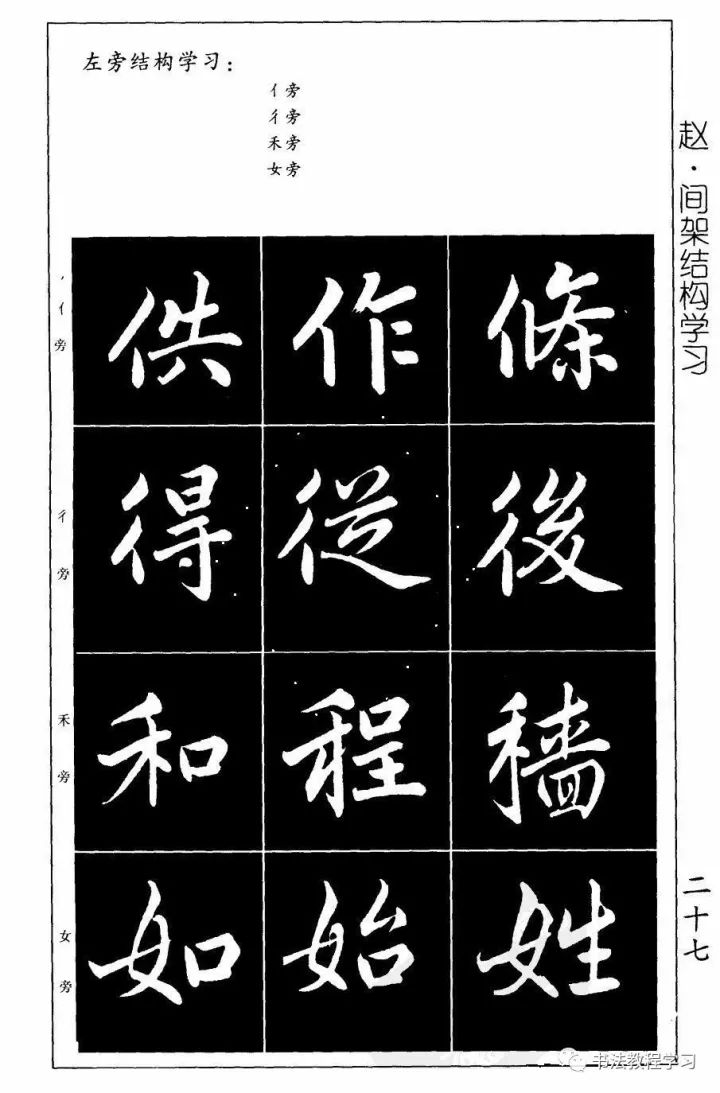 左旁结构学习：
亻旁
彳旁
禾旁
女旁
赵·间架结构学习
亻旁
供作條
彳旁
得從後
禾旁
和程穡
女旁
如始姓
二十七
书法教程学习